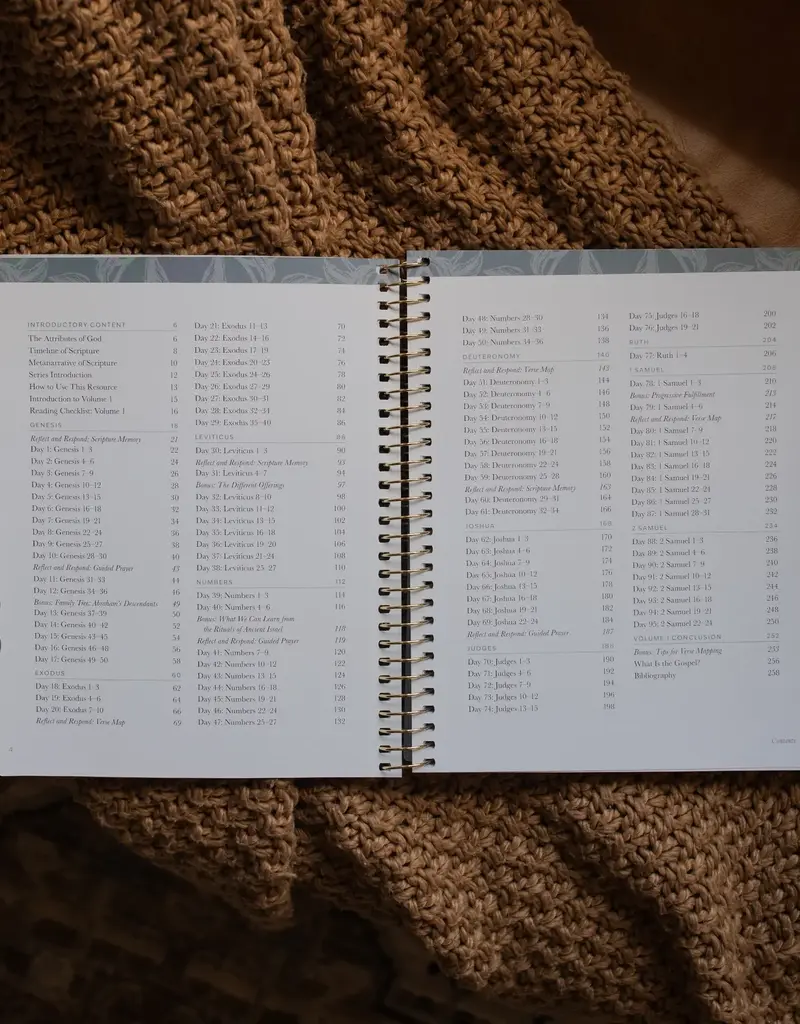 INTRODUCTORY CONTENT 6
The Attributes of God 6
Timeline of Scripture 8
Metanarrative of Scripture 10
Series Introduction 12
How to Use This Resource 13
Introduction to Volume 1 15
Reading Checklist: Volume 1 16
GENESIS 18
Reflect and Respond: Scripture Memory 21
Day 1: Genesis 1–3 22
Day 2: Genesis 4–6 24
Day 3: Genesis 7–9 26
Day 4: Genesis 10–12 28
Day 5: Genesis 13–15 30
Day 6: Genesis 16–18 32
Day 7: Genesis 19–21 34
Day 8: Genesis 22–24 36
Day 9: Genesis 25–27 38
Day 10: Genesis 28–30 40
Reflect and Respond: Guided Prayer 43
Day 11: Genesis 31–33 44
Day 12: Genesis 34–36 46
Bonus: Family Tree: Abraham's Descendants 49
Day 13: Genesis 37–39 50
Day 14: Genesis 40–42 52
Day 15: Genesis 43–45 54
Day 16: Genesis 46–48 56
Day 17: Genesis 49–50 58
EXODUS 60
Day 18: Exodus 1–3 62
Day 19: Exodus 4–6 64
Day 20: Exodus 7–10 66
Reflect and Respond: Verse Map 69
Day 21: Exodus 11–13 70
Day 22: Exodus 14–16 72
Day 23: Exodus 17–19 74
Day 24: Exodus 20–23 76
Day 25: Exodus 24–26 78
Day 26: Exodus 27–29 80
Day 27: Exodus 30–31 82
Day 28: Exodus 32–34 84
Day 29: Exodus 35–40 86
LEVITICUS 88
Day 30: Leviticus 1–3 90
Reflect and Respond: Scripture Memory 93
Day 31: Leviticus 4–7 94
Bonus: The Different Offerings 97
Day 32: Leviticus 8–10 98
Day 33: Leviticus 11–12 100
Day 34: Leviticus 13–15 102
Day 35: Leviticus 16–18 104
Day 36: Leviticus 19–20 106
Day 37: Leviticus 21–24 108
Day 38: Leviticus 25–27 110
NUMBERS 112
Day 39: Numbers 1–3 114
Day 40: Numbers 4–6 116
Bonus: What We Can Learn from
the Rituals of Ancient Israel 118
Reflect and Respond: Guided Prayer 119
Day 41: Numbers 7–9 120
Day 42: Numbers 10–12 122
Day 43: Numbers 13–15 124
Day 44: Numbers 16–18 126
Day 45: Numbers 19–21 128
Day 46: Numbers 22–24 130
Day 47: Numbers 25–27 132
4
Day 48: Numbers 28–30 134
Day 49: Numbers 31–33 136
Day 50: Numbers 34–36 138
DEUTERONOMY 140
Reflect and Respond: Verse Map 143
Day 51: Deuteronomy 1–3 144
Day 52: Deuteronomy 4–6 146
Day 53: Deuteronomy 7–9 148
Day 54: Deuteronomy 10–12 150
Day 55: Deuteronomy 13–15 152
Day 56: Deuteronomy 16–18 154
Day 57: Deuteronomy 19–21 156
Day 58: Deuteronomy 22–24 158
Day 59: Deuteronomy 25–28 160
Reflect and Respond: Scripture Memory 163
Day 60: Deuteronomy 29–31 164
Day 61: Deuteronomy 32–34 166
JOSHUA 168
Day 62: Joshua 1–3 170
Day 63: Joshua 4–6 172
Day 64: Joshua 7–9 174
Day 65: Joshua 10–12 176
Day 66: Joshua 13–15 178
Day 67: Joshua 16–18 180
Day 68: Joshua 19–21 182
Day 69: Joshua 22–24 184
Reflect and Respond: Guided Prayer 187
JUDGES 188
Day 70: Judges 1–3 190
Day 71: Judges 4–6 192
Day 72: Judges 7–9 194
Day 73: Judges 10–12 196
Day 74: Judges 13–15 198
Day 75: Judges 16–18 200
Day 76: Judges 19–21 202
RUTH 204
Day 77: Ruth 1–4 206
1 SAMUEL 208
Day 78: 1 Samuel 1–3 210
Bonus: Progressive Fulfillment 213
Day 79: 1 Samuel 4–6 214
Reflect and Respond: Verse Map 217
Day 80: 1 Samuel 7–9 218
Day 81: 1 Samuel 10–12 220
Day 82: 1 Samuel 13–15 222
Day 83: 1 Samuel 16–18 224
Day 84: 1 Samuel 19–21 226
Day 85: 1 Samuel 22–24 228
Day 86: 1 Samuel 25–27 230
Day 87: 1 Samuel 28–31 232
2 SAMUEL 234
Day 88: 2 Samuel 1–3 236
Day 89: 2 Samuel 4–6 238
Day 90: 2 Samuel 7–9 240
Day 91: 2 Samuel 10–12 242
Day 92: 2 Samuel 13–15 244
Day 93: 2 Samuel 16–18 246
Day 94: 2 Samuel 19–21 248
Day 95: 2 Samuel 22–24 250
VOLUME 1 CONCLUSION 252
Bonus: Tips for Verse Mapping 253
What Is the Gospel? 256
Bibliography 258
Contents